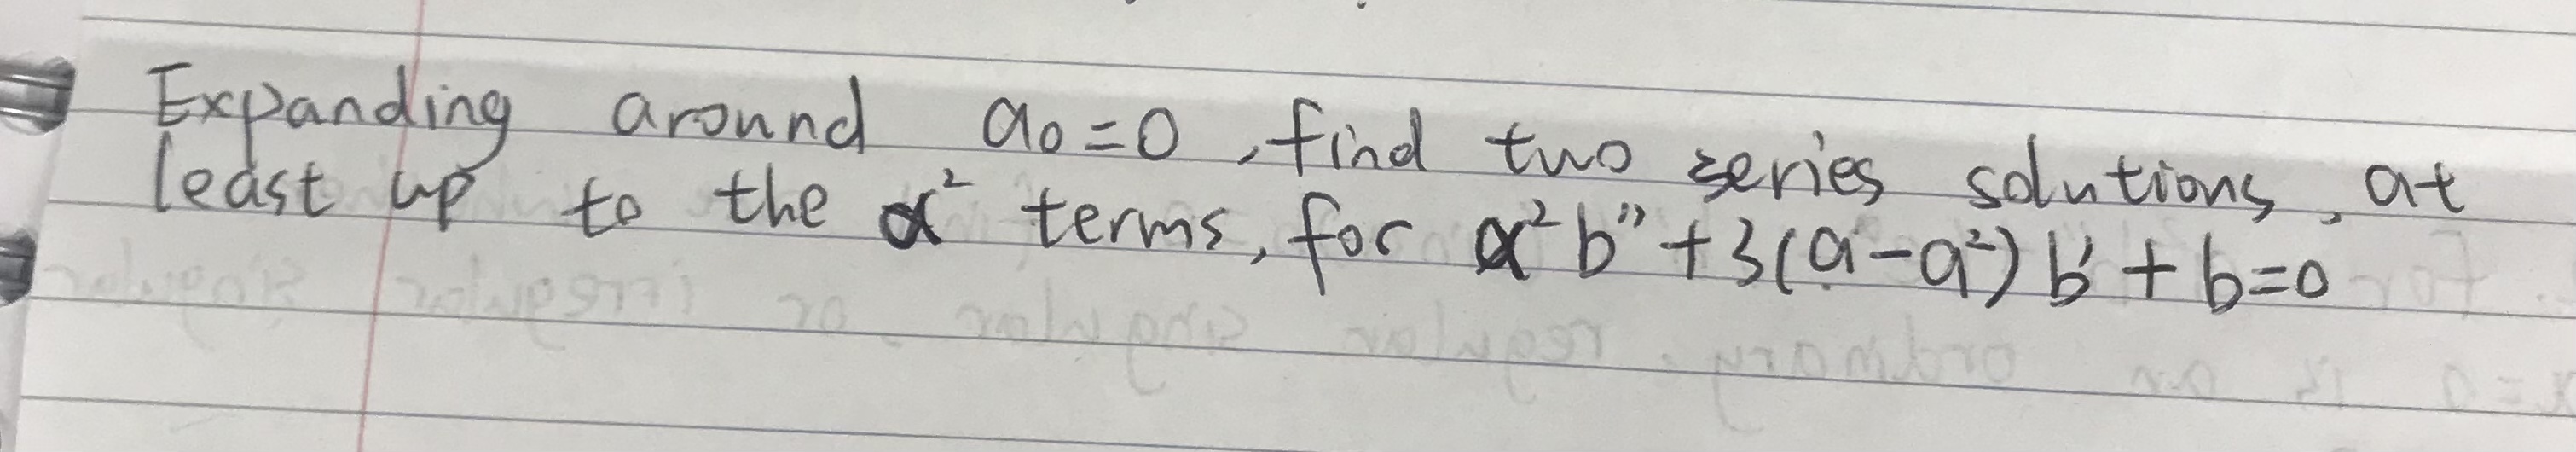 Expanding around a₀=0, find two series solutions, at
least up to the a² terms, for a²b''+3(a-a²)b'+b=0